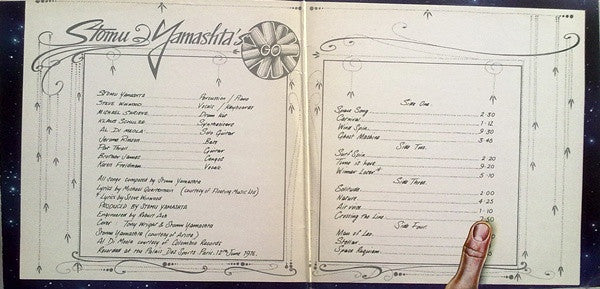 Stomu Yamashta's
GO
Stomu Yamashta Percussion / Piano
Steve Winwood Vocals / Keyboards
Michael Shrieve Drum Kit
Klaus Schulze Synthesizers
Al Di Meola Solo Guitar
Jerome Rimson Bass
Pat Thrall Guitar
Brother James Congas
Karen Friedman Vocals
All songs composed by Stomu Yamashta
Lyrics by Michael Quartermain (courtesy of Floating Music Ltd)
* Lyrics by Steve Winwood
Produced by Stomu Yamashta
Engineered by Robert Ash
Cover Tony Wright & Stomu Yamashta
Stomu Yamashta (courtesy of Arista)
Al Di Meola courtesy of Columbia Records
Recorded at the Palais Des Sports Paris 12th June 1976.
Side One.
Space Song 2·30
Carnival 1·12
Wind Spin 9·30
Ghost Machine 3·45
Side Two.
Surf Spin 2·20
Time is here 9·20
Winner Lover* 5·10
Side Three.
Solitude 2·00
Nature 4·25
Air voice 1·10
Crossing the Line
Side Four
Man of Leo
Stellar
Space Requiem